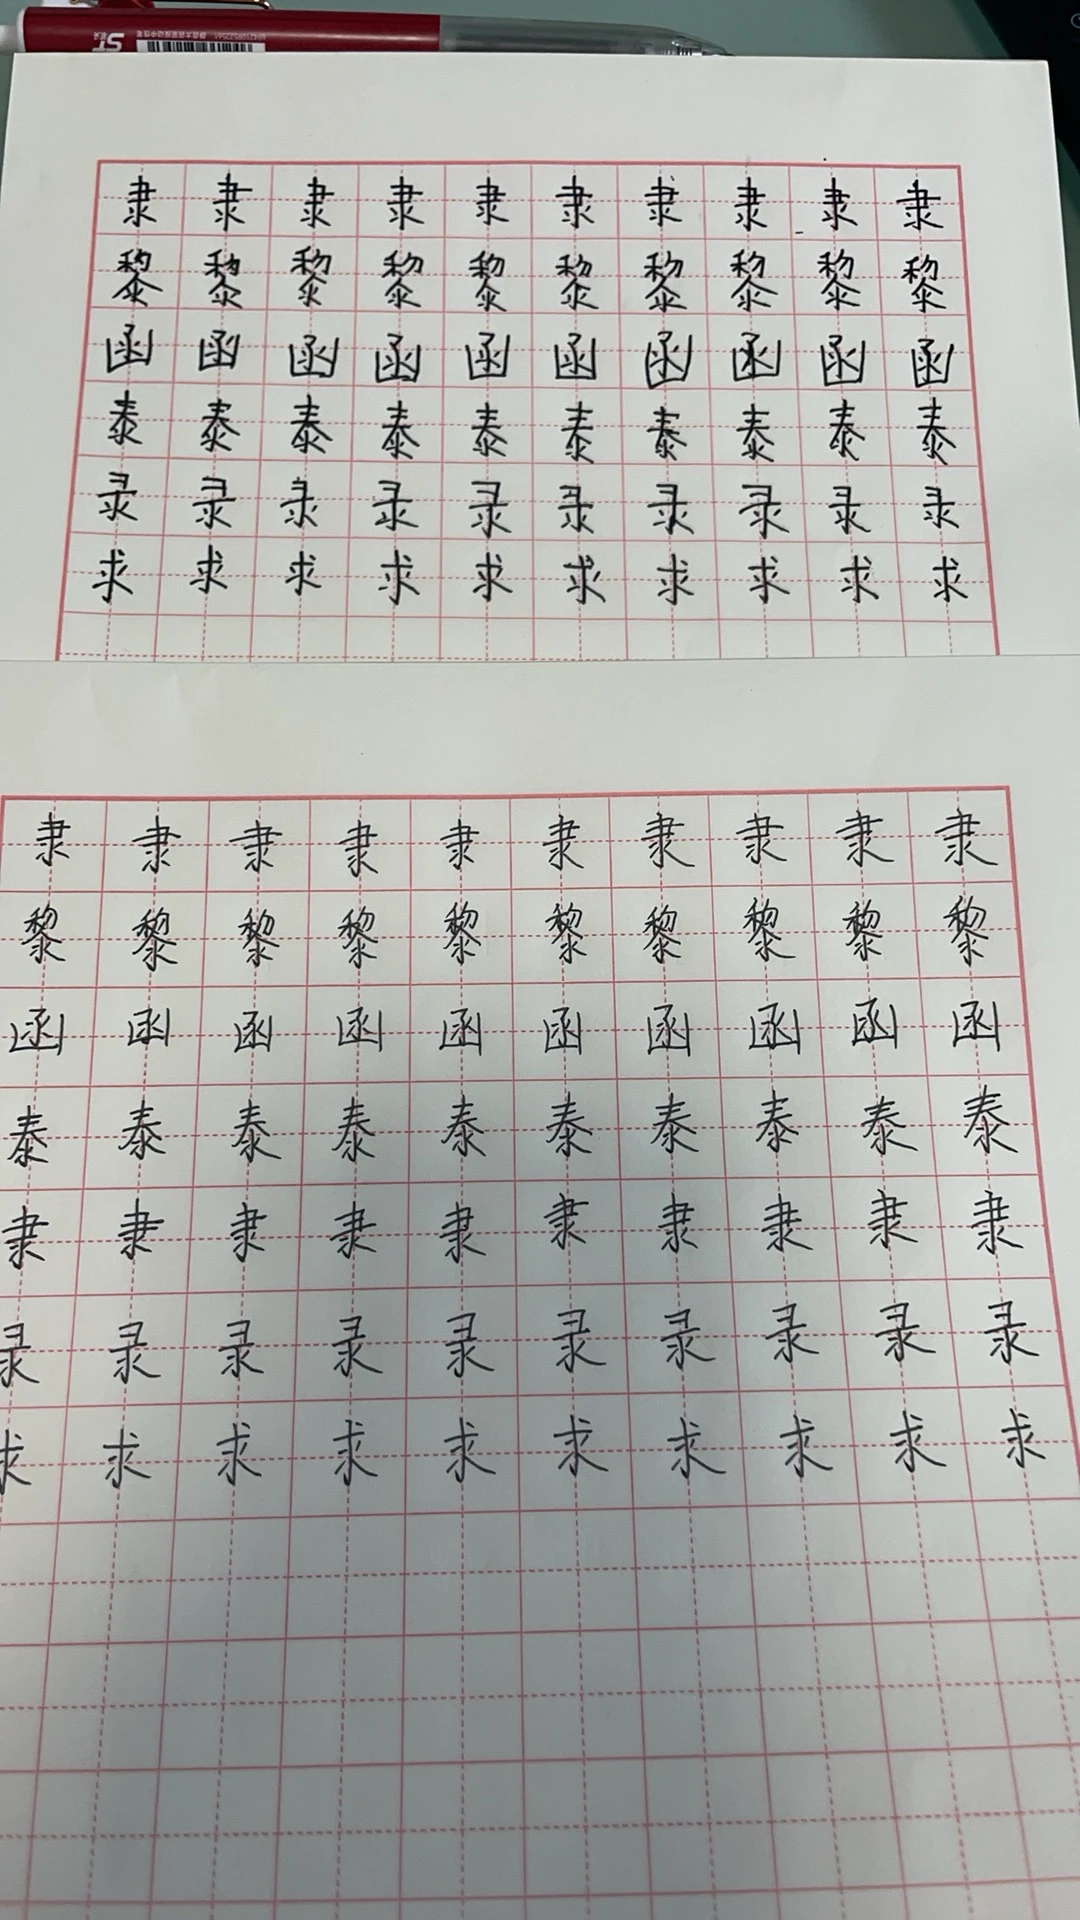 隶隶隶隶隶隶隶隶隶隶
黎黎黎黎黎黎黎黎黎黎
函函函函函函函函函函
泰泰泰泰泰泰泰泰泰泰
录录录录录录录录录录
求求求求求求求求求求
隶隶隶隶隶隶隶隶隶隶
黎黎黎黎黎黎黎黎黎黎
函函函函函函函函函函
泰泰泰泰泰泰泰泰泰泰
隶隶隶隶隶隶隶隶隶隶
录录录录录录录录录录
求求求求求求求求求求